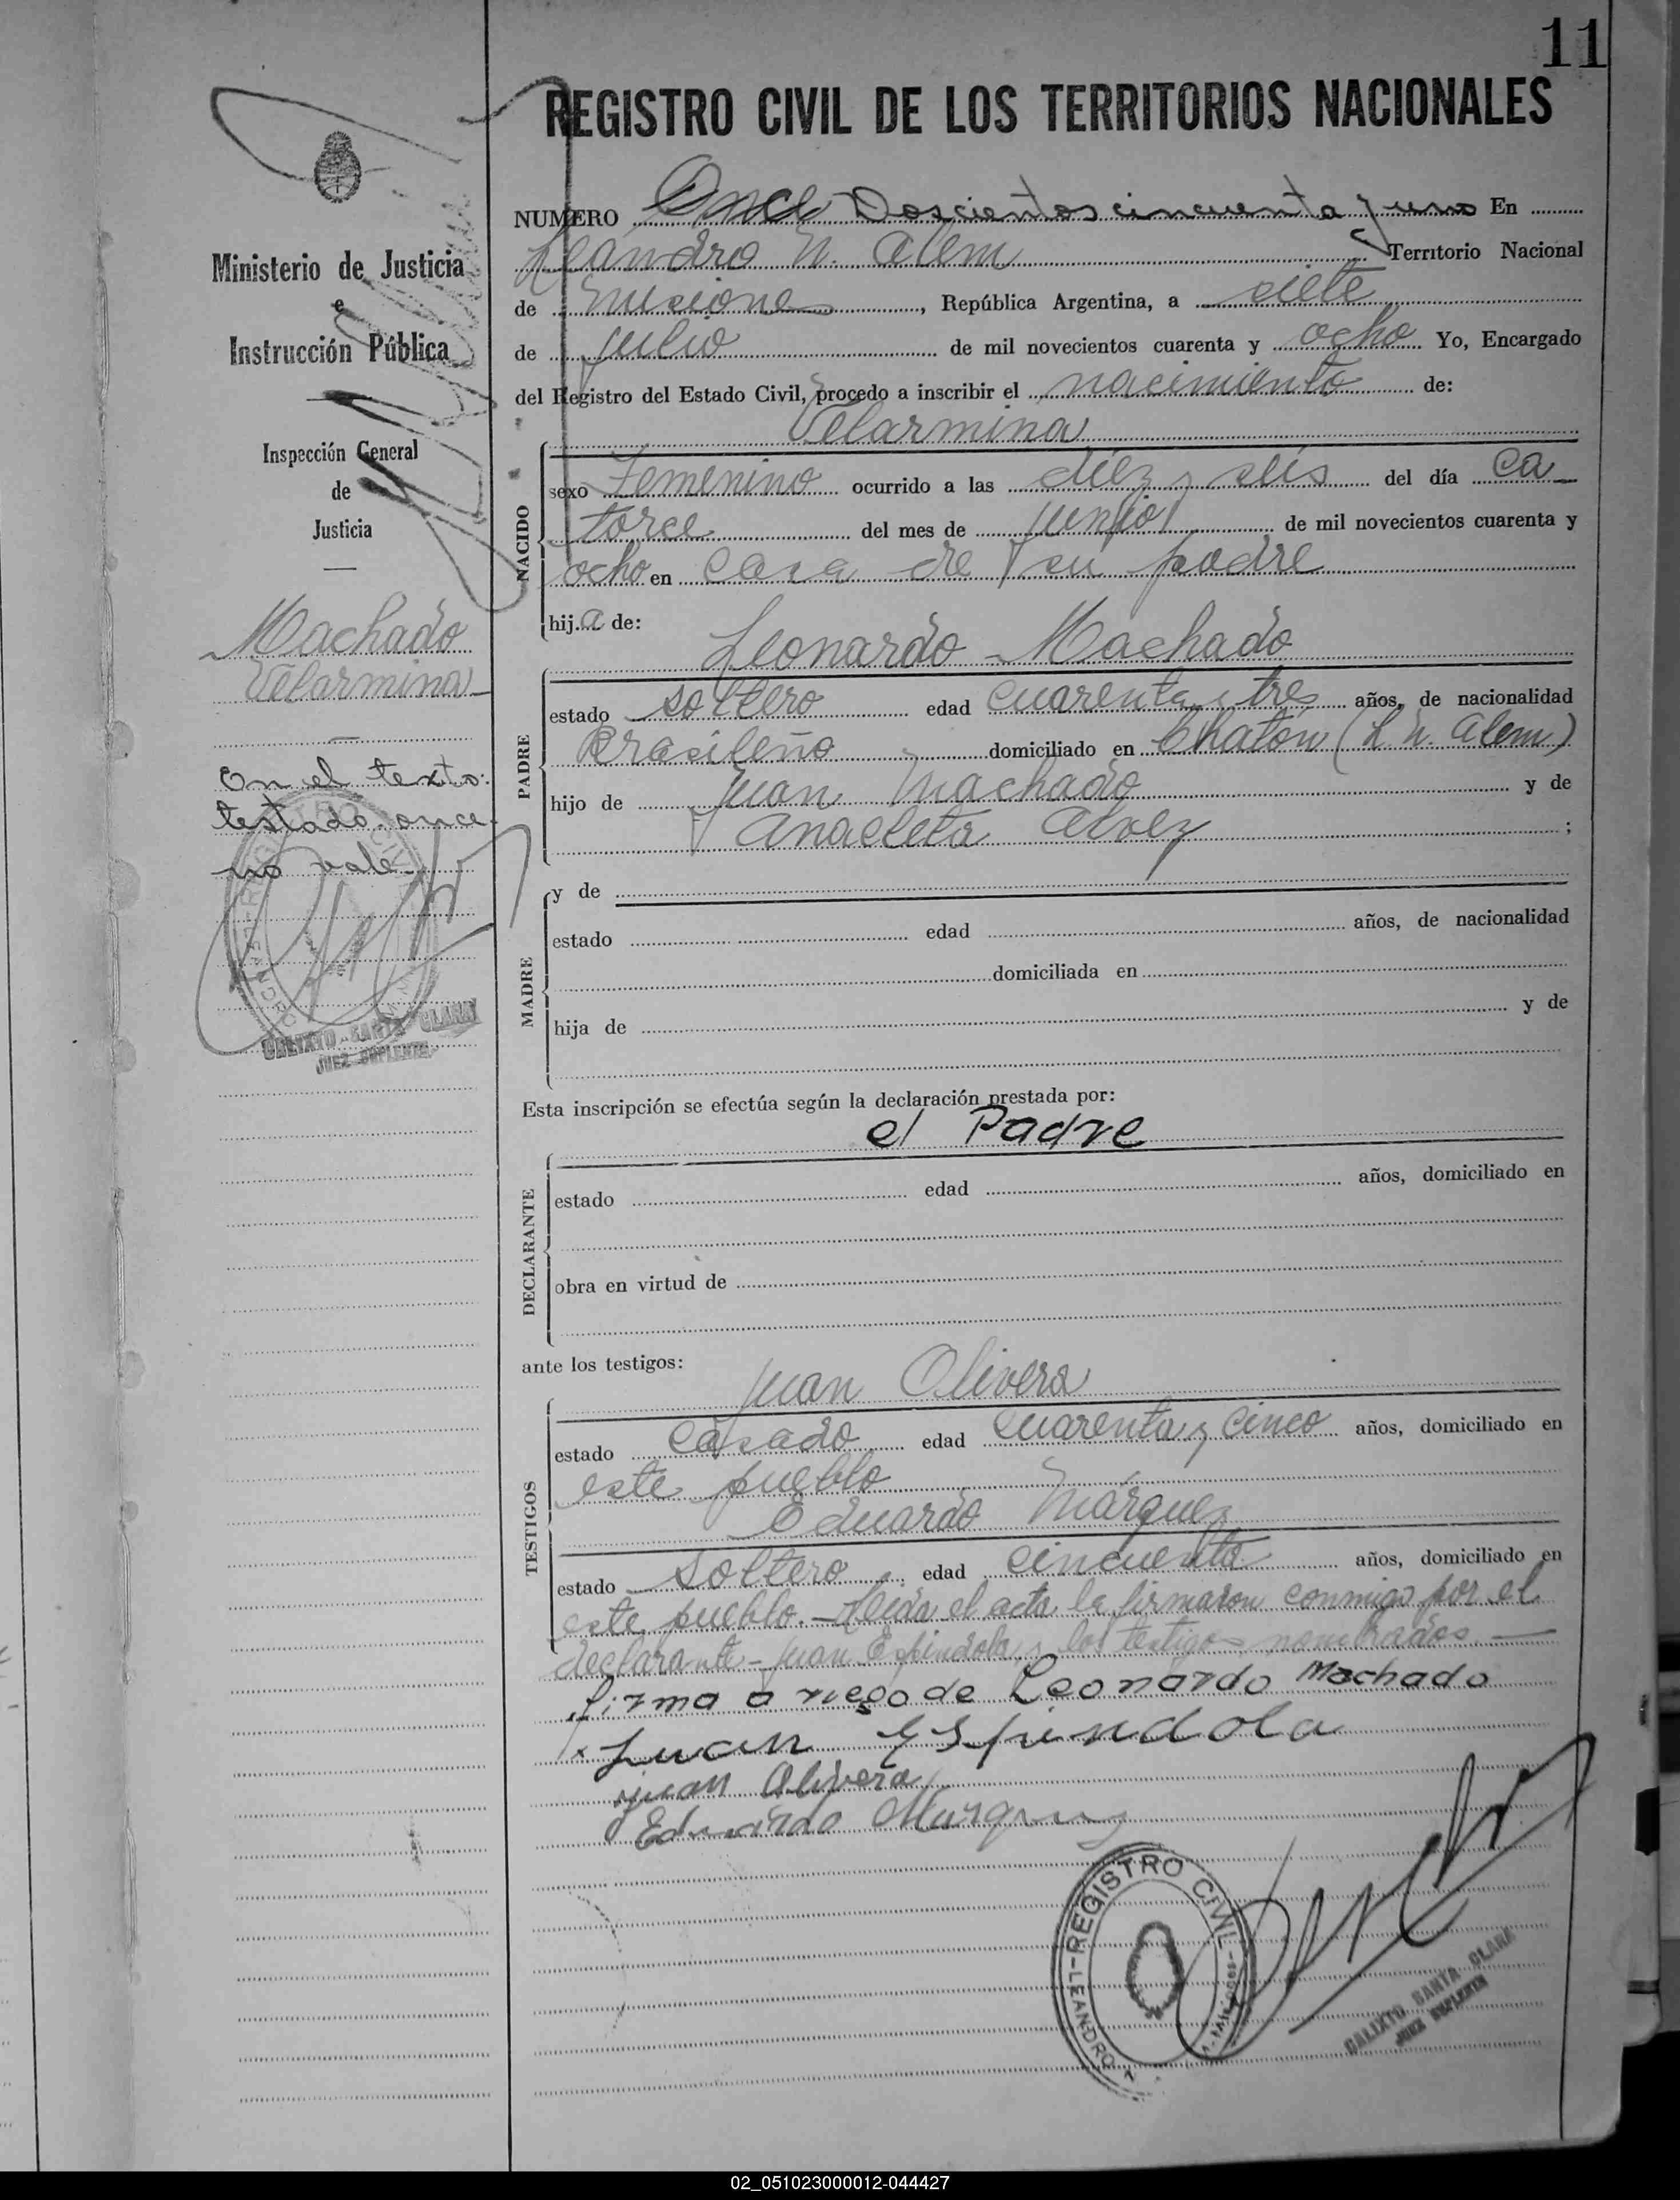 11
REGISTRO CIVIL DE LOS TERRITORIOS NACIONALES
NUMERO Once Doscientos cincuenta y uno En
Leandro N. Alem Territorio Nacional
de Misiones, República Argentina, a siete
de julio de mil novecientos cuarenta y ocho Yo, Encargado
del Registro del Estado Civil, procedo a inscribir el nacimiento de:
Velarmina
NACIDO
sexo Femenino ocurrido a las diez y seis del día ca
torce del mes de junio de mil novecientos cuarenta y
ocho en casa de su padre
hij.a de:
Leonardo Machado
PADRE
estado soltero edad cuarenta y tres años, de nacionalidad
Brasileño domiciliado en Chatón (L. N. Alem)
hijo de Juan Machado y de
Anacleta Alvez ;
MADRE
y de
estado edad años, de nacionalidad
domiciliada en
hija de y de
Esta inscripción se efectúa según la declaración prestada por:
el Padre
DECLARANTE
estado edad años, domiciliado en
obra en virtud de
ante los testigos:
Juan Olivera
TESTIGOS
estado casado edad cuarenta y cinco años, domiciliado en
este pueblo
Eduardo Márquez
estado soltero edad cincuenta años, domiciliado en
este pueblo. - Leída el acta la firmaron conmigo por el
declarante - Juan Espindola y los testigos nombrados. —
firma a ruego de Leonardo Machado
x Juan Espindola
Juan Olivera
Eduardo Marquez
REGISTRO CIVIL
LEANDRO
CALIXTO SANTA CLARA
JUEZ SUPLENTE
Ministerio de Justicia
e
Instrucción Pública
Inspección General
de
Justicia
Machado
Velarmina
En el texto:
testado once
no vale
CALIXTO SANTA CLARA
JUEZ SUPLENTE
02_051023000012-044427